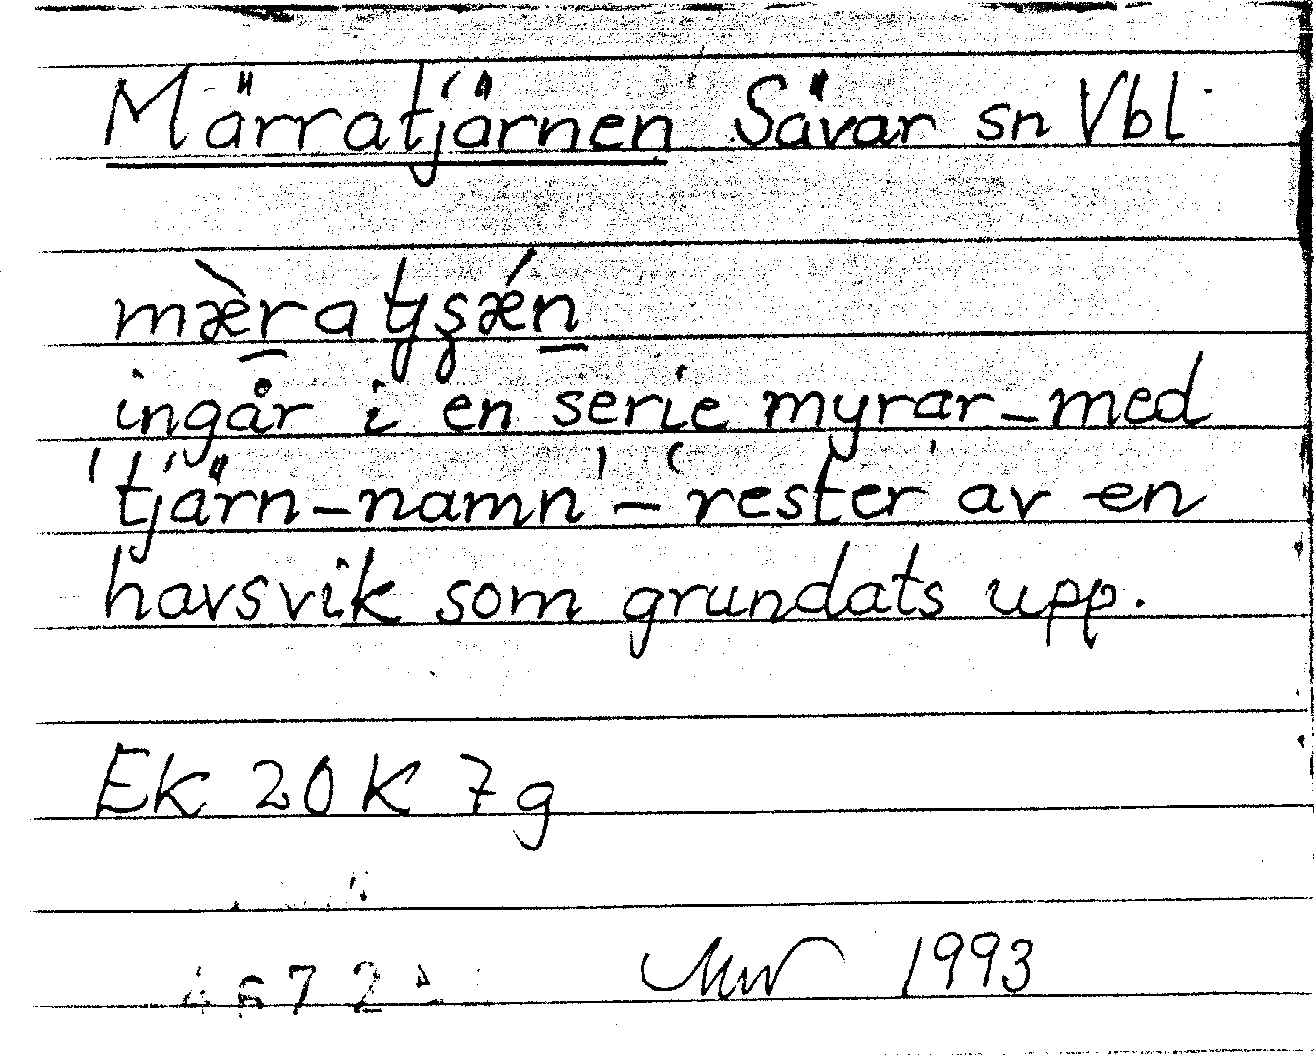 Märratjärnen Sävar sn Vbl
ingår i en serie myrar – med
'tjärn-namn' – rester av en
havsvik som grundats upp.
Ek 20K 7g
1993